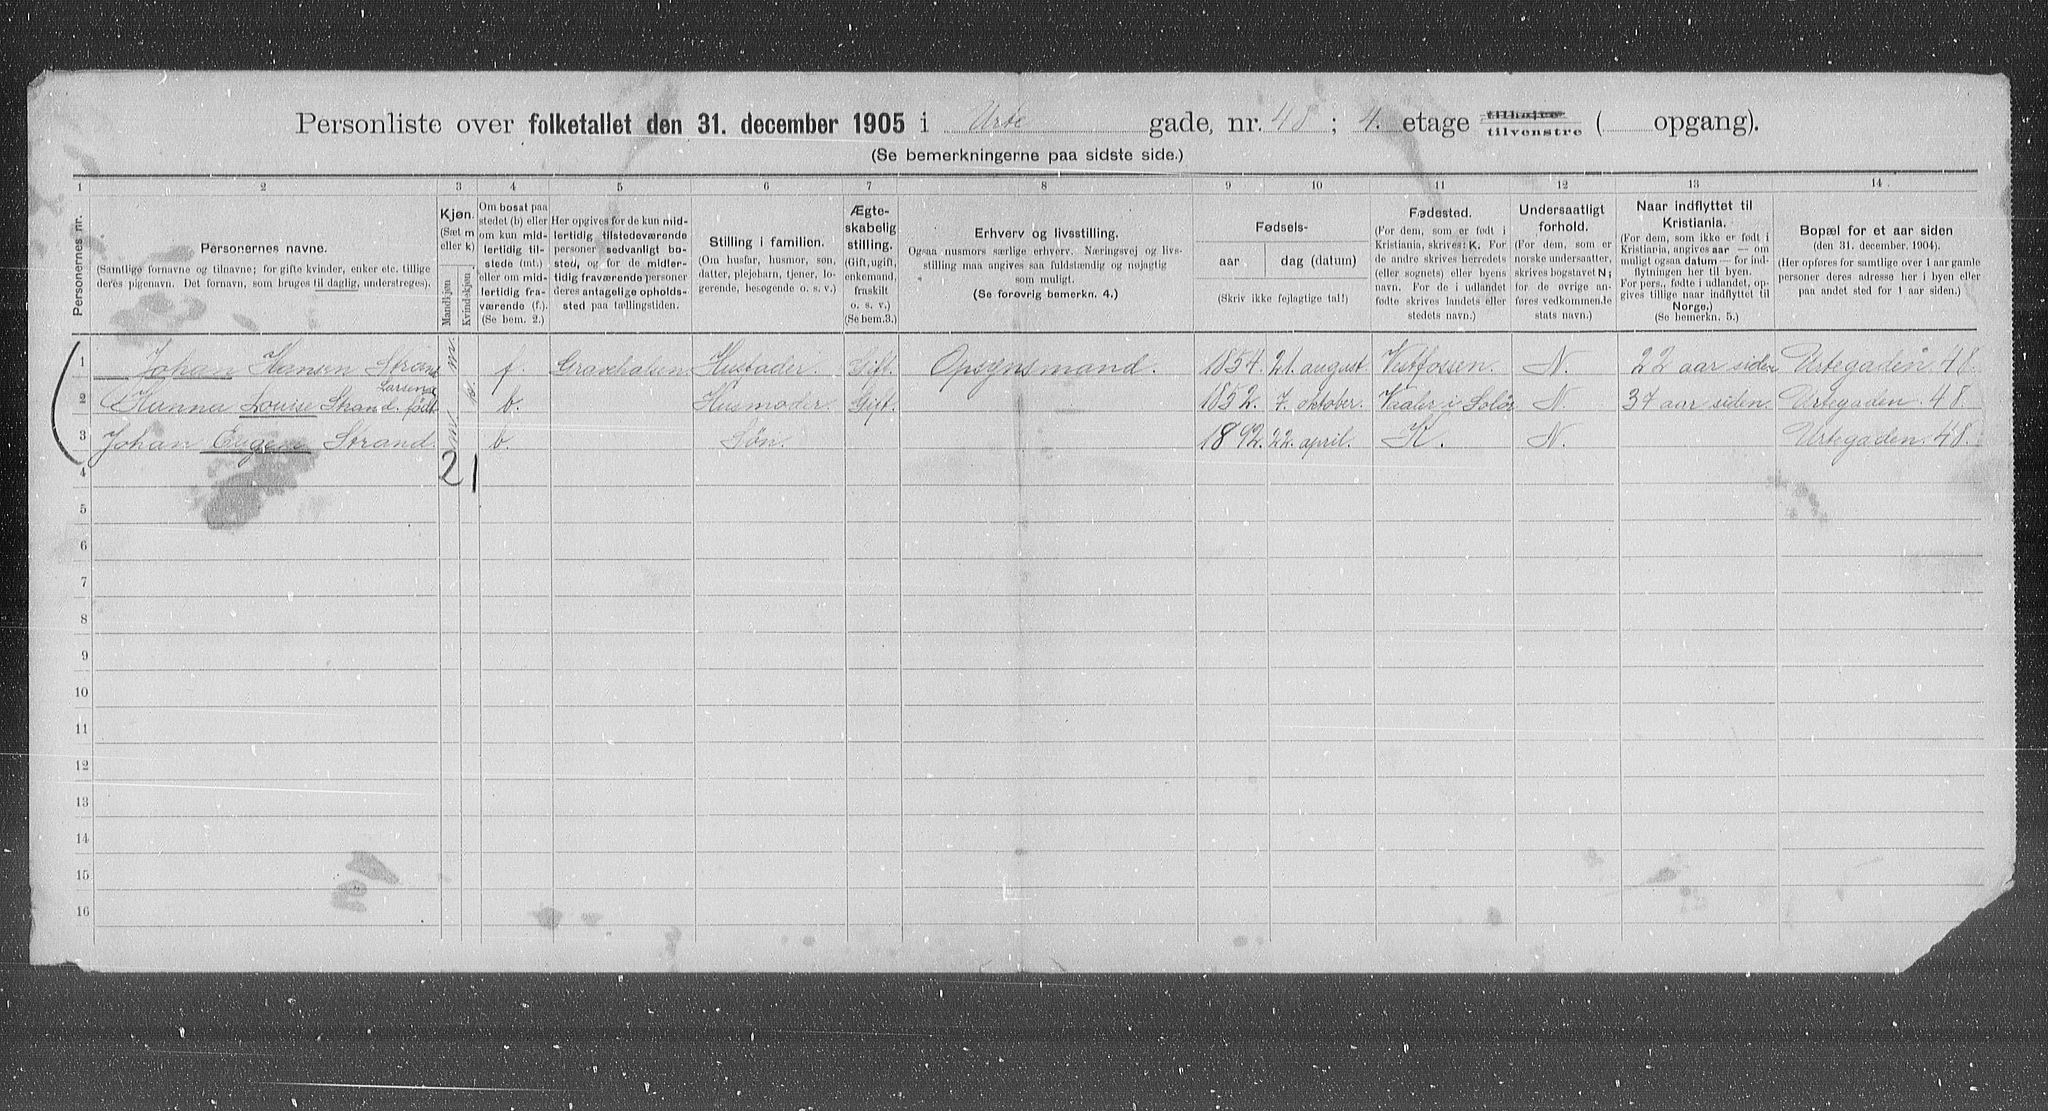 Personliste over folketallet den 31. december 1905 i Urte gade, nr. 48; 4. etage tilhøire tilvenstre ( opgang).
(Se bemerkningerne paa sidste side.)
1 2 3 4 5 6 7 8 9 10 11 12 13 14
Personernes nr.
Personernes navne.
(Samtlige fornavne og tilnavne; for gifte kvinder, enker etc. tillige
deres pigenavn. Det fornavn, som bruges til daglig, understreges).
Kjøn.
(Sæt m
eller k)
Mandkjøn
Kvindekjøn
Om bosat paa
stedet (b) eller
om kun mid-
lertidig til-
stede (mt.)
eller om mid-
lertidig fra-
værende (f.)
(Se bem. 2.)
Her opgives for de kun mid-
lertidig tilstedeværende
personer sedvanligt bo-
sted, og for de midler-
tidig fraværende personer
deres antagelige opholds-
sted paa tællingstiden.
Stilling i familien.
(Om husfar, husmor, søn,
datter, plejebarn, tjener, lo-
gerende, besøgende o. s. v.)
Ægte-
skabelig
stilling.
(Gift, ugift,
enkemand,
fraskilt
o. s. v.)
(Se bem.3.)
Erhverv og livsstilling.
Ogsaa husmors særlige erhverv. Næringsvej og livs-
stilling maa angives saa fuldstændig og nøjagtig
som muligt.
(Se forøvrig bemerkn. 4.)
Fødsels-
aar
dag (datum)
(Skriv ikke fejlagtige tal!)
Fødested.
(For dem, som er født i
Kristiania, skrives: K. For
de andre skrives herredets
(eller sognets) eller byens
navn. For de i udlandet
fødte skrives landets eller
stedets navn.)
Undersaatligt
forhold.
(For dem, som er
norske undersaatter,
skrives bogstavet N;
for de øvrige an-
føres vedkommende
stats navn.)
Naar indflyttet til
Kristiania.
(For dem, som ikke er født i
Kristiania, angives aar — om
muligt ogsaa datum — for ind-
flytningen her til byen.
For pers., fødte i udlandet, op-
gives tillige naar indflyttet til
Norge.)
(Se bemerkn. 5.)
Bopæl for et aar siden
(den 31. december. 1904).
(Her opføres for samtlige over 1 aar gamle
personer deres adresse her i byen eller
paa andet sted for 1 aar siden.)
1 Johan Hansen Strand m. f. Husfader. Gift. Opsynsmand. 1854. 21. august Vestfossen. N. 22 aar siden Urtegaden 48.
Larsen
2 Hanna Louise Strand. født k. b. Husmoder. Gift. 1852. 7. oktober. Vaaler i Solør N. 37 aar siden. Urtegaden. 48.
3 Johan Eugen Strand. m b Søn. 1892. 22. april. K. N. Urtegaden. 48.
2 1
4
5
6
7
8
9
10
11
12
13
14
15
16